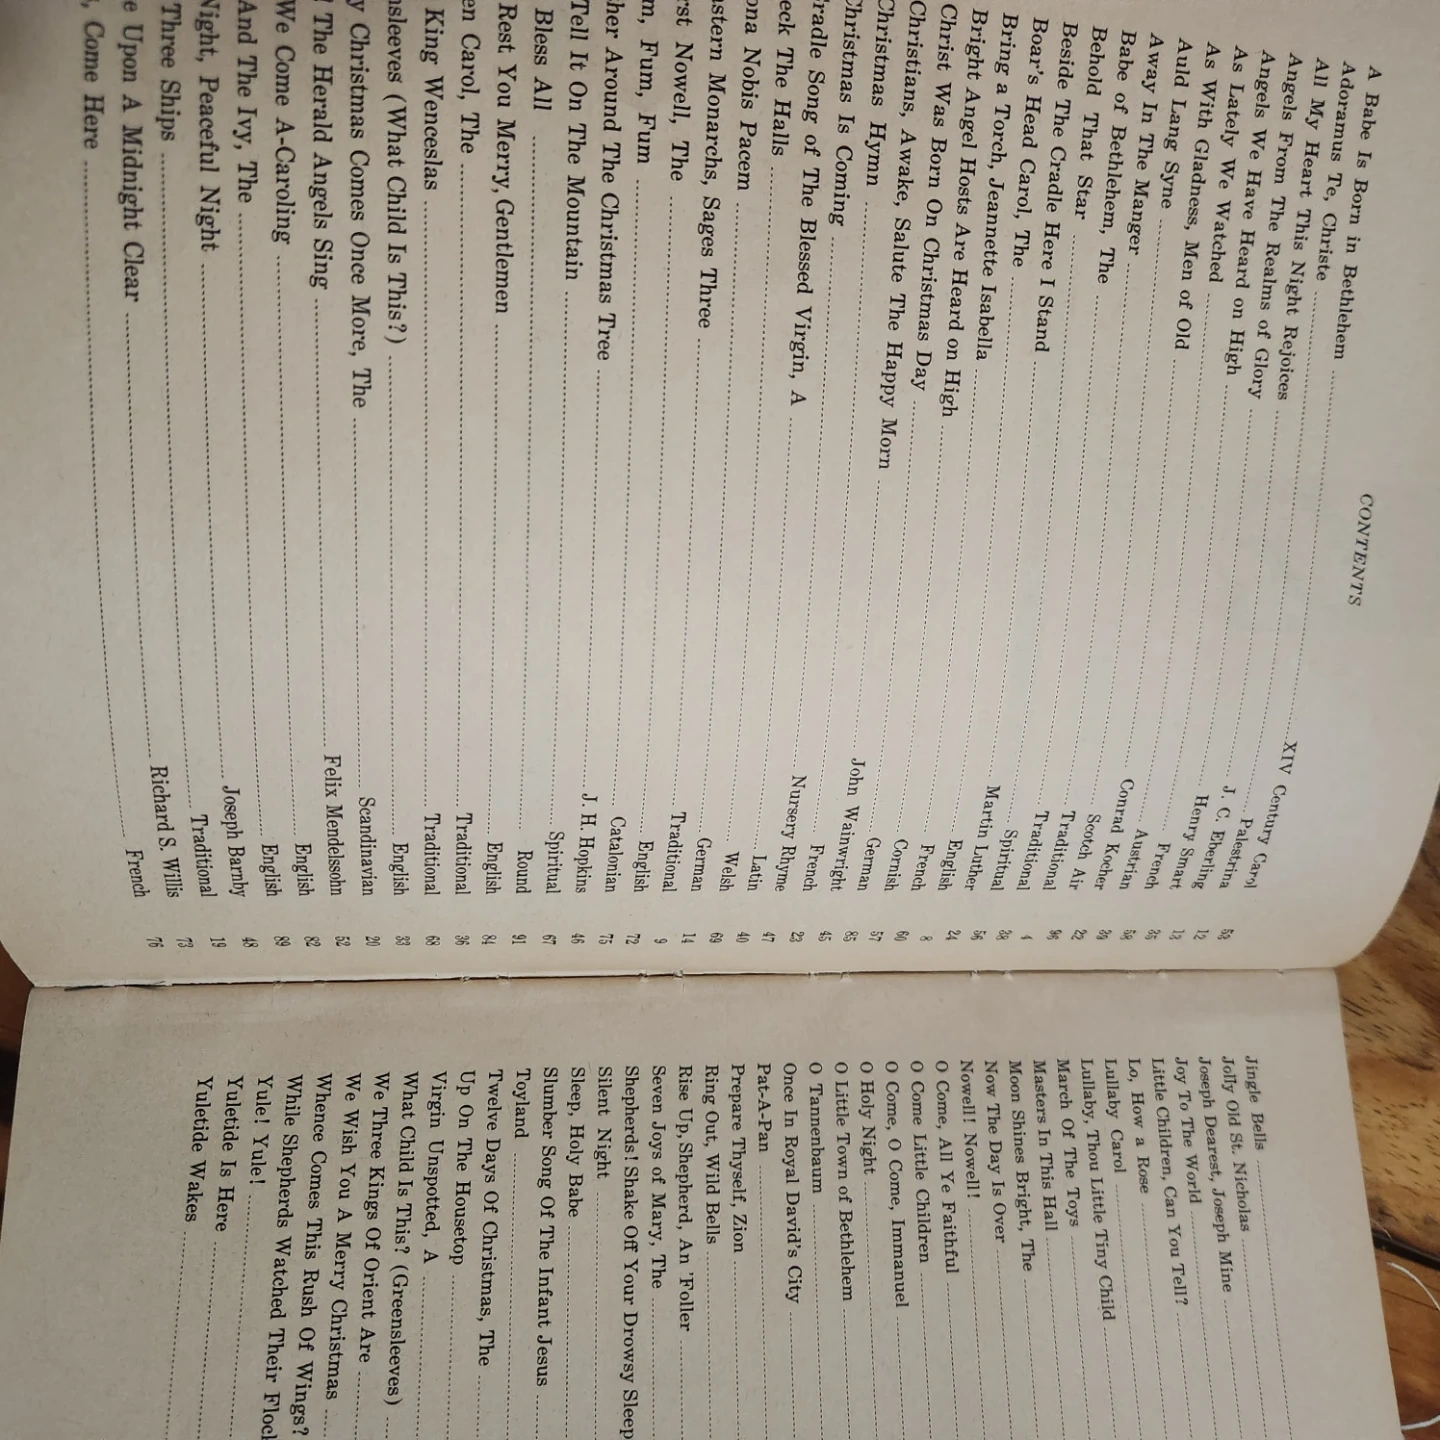 CONTENTS
A Babe Is Born in Bethlehem ........ XIV Century Carol 53
Adoramus Te, Christe ........ Palestrina 12
All My Heart This Night Rejoices ........ J. C. Eberling 13
Angels From The Realms of Glory ........ Henry Smart 25
Angels We Have Heard on High ........ French 58
As Lately We Watched ........ Austrian 39
As With Gladness, Men of Old ........ Conrad Kocher 22
Auld Lang Syne ........ Scotch Air 96
Away In The Manger ........ Traditional 4
Babe of Bethlehem, The ........ Traditional 38
Behold That Star ........ Spiritual 56
Beside The Cradle Here I Stand ........ Martin Luther 24
Boar's Head Carol, The ........ English 8
Bring a Torch, Jeannette Isabella ........ French 60
Bright Angel Hosts Are Heard on High ........ Cornish 57
Christ Was Born On Christmas Day ........ German 85
Christians, Awake, Salute The Happy Morn ........ John Wainwright 45
Christmas Hymn ........ French 23
Christmas Is Coming ........ Nursery Rhyme 47
radle Song of The Blessed Virgin, A ........ Latin 40
eck The Halls ........ Welsh 69
ona Nobis Pacem ........ German 14
astern Monarchs, Sages Three ........ Traditional 9
rst Nowell, The ........ English 72
m, Fum, Fum ........ Catalonian 75
her Around The Christmas Tree ........ J. H. Hopkins 46
Tell It On The Mountain ........ Spiritual 67
Bless All ........ Round 91
Rest You Merry, Gentlemen ........ English 84
en Carol, The ........ Traditional 36
King Wenceslas ........ Traditional 68
nsleeves (What Child Is This?) ........ English 33
y Christmas Comes Once More, The ........ Scandinavian 20
! The Herald Angels Sing ........ Felix Mendelssohn 52
We Come A-Caroling ........ English 82
And The Ivy, The ........ English 89
Night, Peaceful Night ........ Joseph Barnby 48
Three Ships ........ Traditional 19
e Upon A Midnight Clear ........ Richard S. Willis 73
, Come Here ........ French 76
Jingle Bells ........
Jolly Old St. Nicholas ........
Joseph Dearest, Joseph Mine ........
Joy To The World ........
Little Children, Can You Tell? ........
Lo, How a Rose ........
Lullaby Carol ........
Lullaby, Thou Little Tiny Child ........
March Of The Toys ........
Masters In This Hall ........
Moon Shines Bright, The ........
Now The Day Is Over ........
Nowell! Nowell! ........
O Come, All Ye Faithful ........
O Come Little Children ........
O Come, O Come, Immanuel ........
O Holy Night ........
O Little Town of Bethlehem ........
O Tannenbaum ........
Once In Royal David's City ........
Pat-A-Pan ........
Prepare Thyself, Zion ........
Ring Out, Wild Bells ........
Rise Up, Shepherd, An 'Foller ........
Seven Joys of Mary, The ........
Shepherds! Shake Off Your Drowsy Sleep
Silent Night ........
Sleep, Holy Babe ........
Slumber Song Of The Infant Jesus ........
Toyland ........
Twelve Days Of Christmas, The ........
Up On The Housetop ........
Virgin Unspotted, A ........
What Child Is This? (Greensleeves) ........
We Three Kings Of Orient Are ........
We Wish You A Merry Christmas ........
Whence Comes This Rush Of Wings?
While Shepherds Watched Their Flock
Yule! Yule! ........
Yuletide Is Here ........
Yuletide Wakes ........